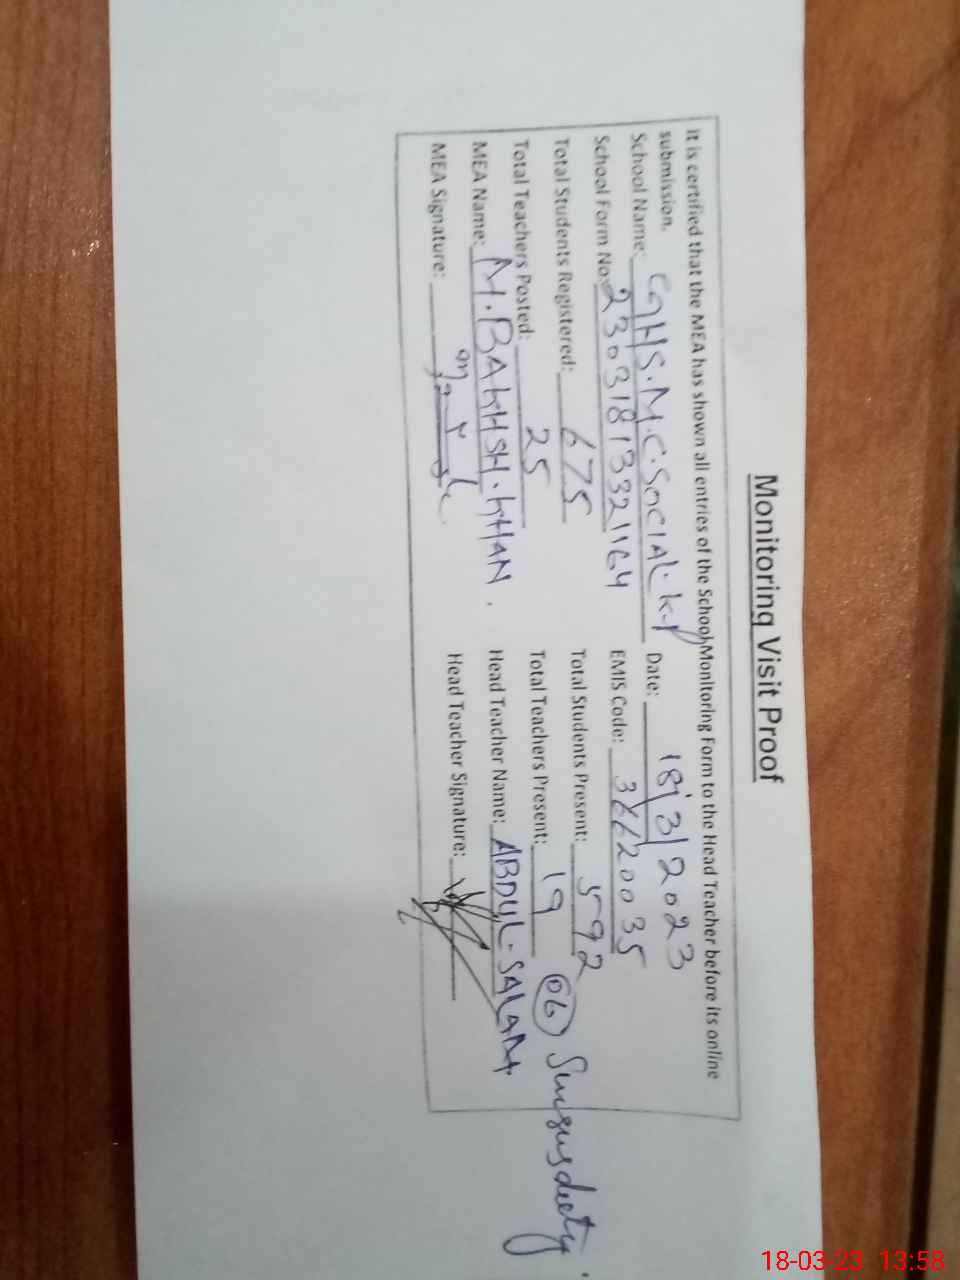 Monitoring Visit Proof
It is certified that the MEA has shown all entries of the School Monitoring Form to the Head Teacher before its online
submission.
School Name: GHS.M.C.SOCIAL.K.P Date: 18/3/2023
School Form No: 23031813321164 EMIS Code: 36620035
Total Students Registered: 675 Total Students Present: 592
Total Teachers Posted: 25 Total Teachers Present: 19 06 Sensus duety.
MEA Name: M.BAKHSH.KHAN. Head Teacher Name: ABDUL.SALAM
MEA Signature: Head Teacher Signature:
18-03-23 13:58